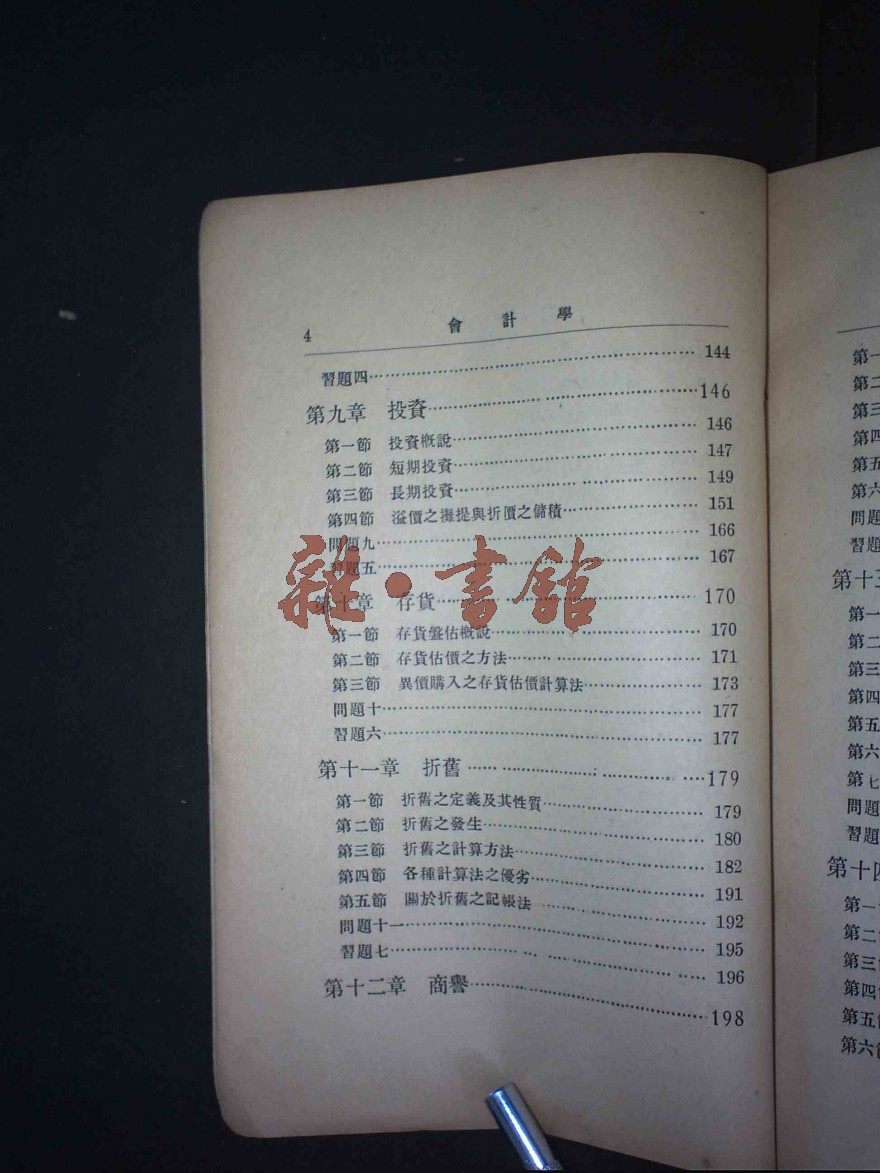 4 會計學
習題四 144
第九章 投資 146
第一節 投資概說 146
第二節 短期投資 147
第三節 長期投資 149
第四節 溢價之攤提與折價之儲積 151
問題九 166
習題五 167
第十章 存貨 170
第一節 存貨盤估概說 170
第二節 存貨估價之方法 171
第三節 異價購入之存貨估價計算法 173
問題十 177
習題六 177
第十一章 折舊 179
第一節 折舊之定義及其性質 179
第二節 折舊之發生 180
第三節 折舊之計算方法 182
第四節 各種計算法之優劣 191
第五節 關於折舊之記帳法 192
問題十一 195
習題七 196
第十二章 商譽 198
雜·書館
第一
第二
第三
第四
第五
第六
問題
習題
第十三
第一
第二
第三
第四
第五
第六
第七
問題
習題
第十四
第一
第二
第三
第四
第五
第六節